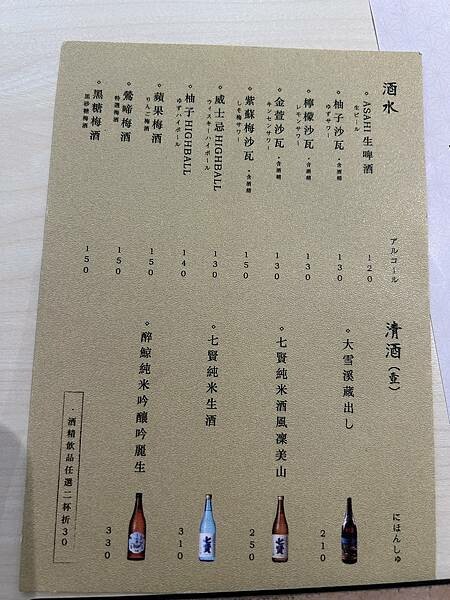 酒水
アルコール
◇ASAHI 生啤酒
生ビール
120
◇柚子沙瓦 •含酒精
ゆずサワー
130
◇檸檬沙瓦 •含酒精
レモンサワー
130
◇金萱沙瓦 •含酒精
キンセンサワー
130
◇紫蘇梅沙瓦 •含酒精
しそ梅サワー
150
◇威士忌HIGHBALL
ウィスキーハイボール
130
◇柚子HIGHBALL
ゆずハイボール
140
◇蘋果梅酒
りんご梅酒
150
◇鶯啼梅酒
特選梅酒
150
◇黑糖梅酒
黒砂糖梅酒
150
清酒(壺)
にほんしゅ
◇大雪溪蔵出し
210
◇七賢純米酒風凜美山
250
◇七賢純米生酒
310
◇醉鯨純米吟釀吟麗生
330
•酒精飲品任選二杯折30